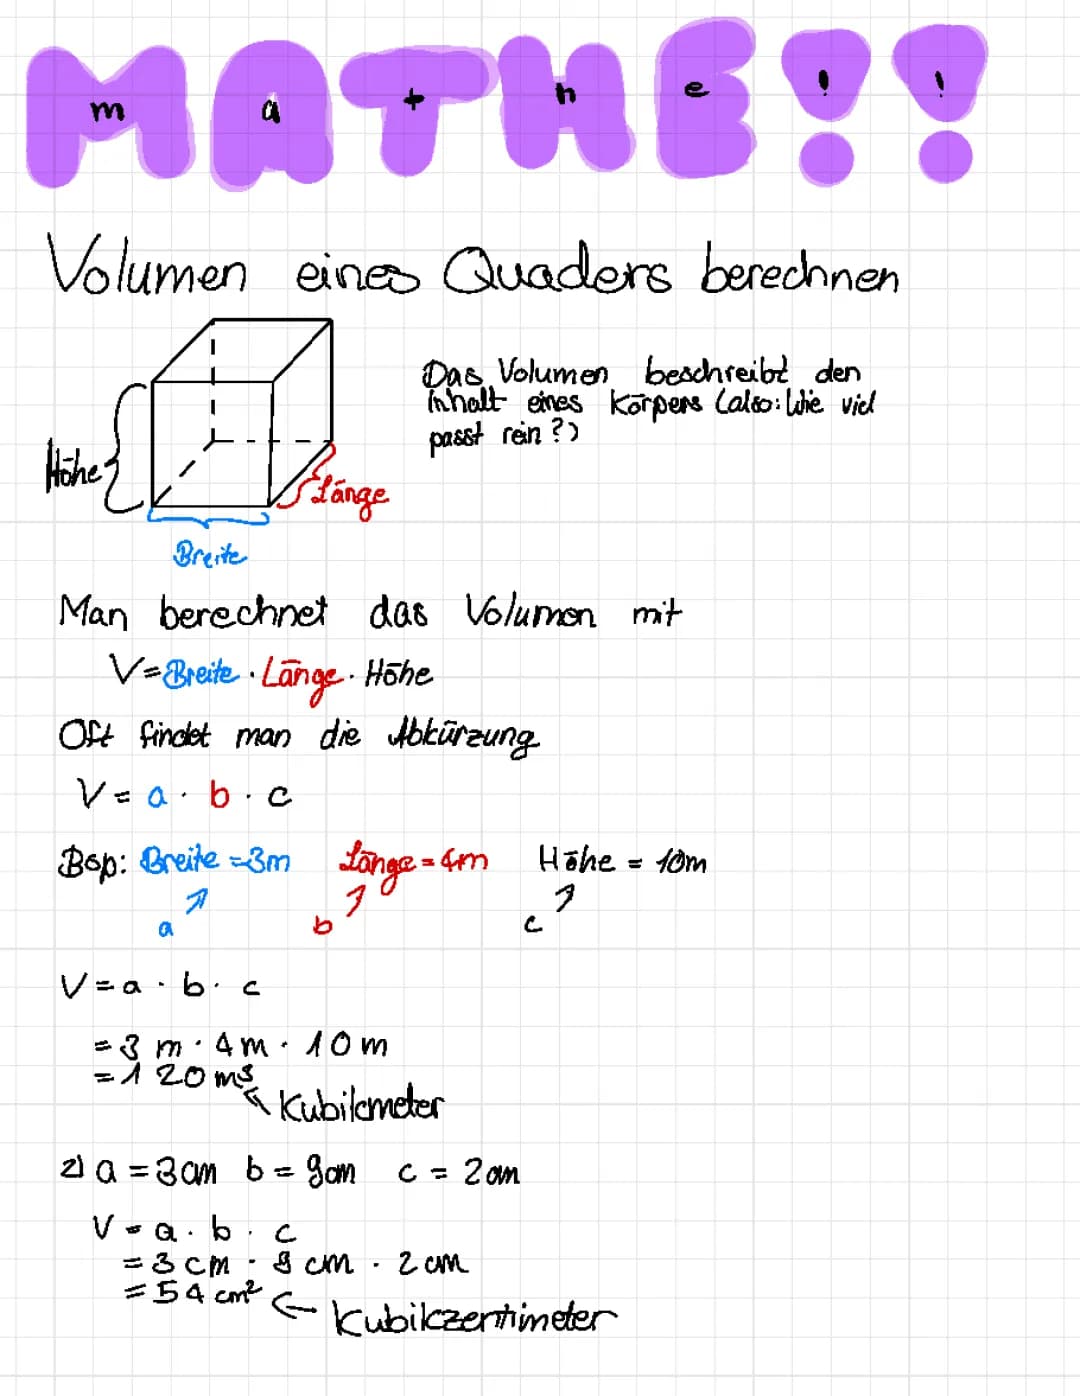 MATHE!!
m a t h e ! !
Volumen eines Quaders berechnen
Das Volumen beschreibt den
Inhalt eines Körpers (also: Wie viel
passt rein?)
Höhe
Länge
Breite
Man berechnet das Volumen mit
V=Breite · Länge · Höhe
Oft findet man die Abkürzung
V = a · b · c
Bsp: Breite =3m Länge = 4m Höhe = 10m
a b c
V = a · b · c
= 3 m · 4m · 10 m
= 120 m³
Kubikmeter
2) a = 3cm b = 9cm c = 2cm
V = a · b · c
= 3 cm · 9 cm · 2 cm
= 54 cm²
Kubikzentimeter